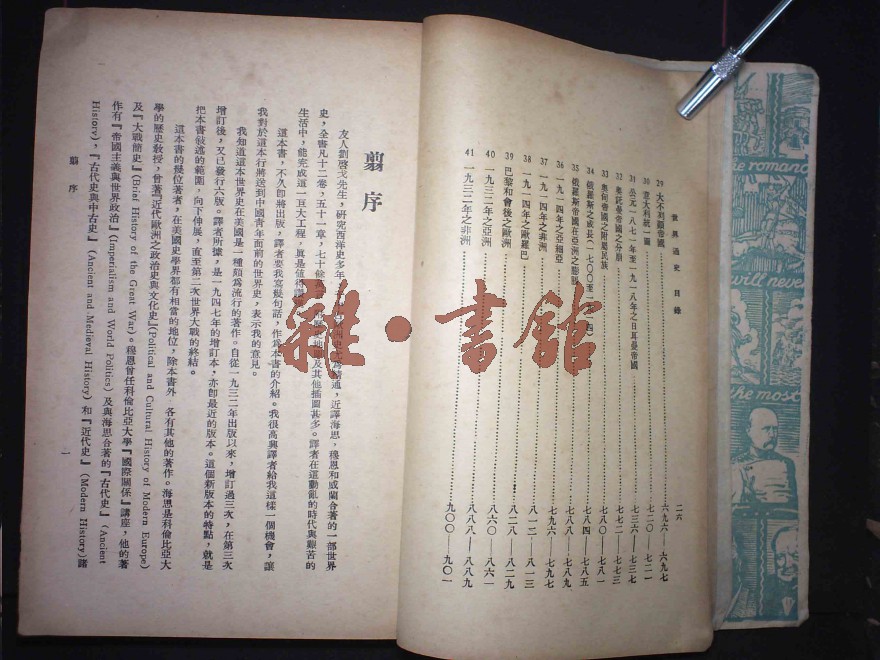 世界通史 目錄
二六
29 大不列顛帝國……六九六——六九七
30 意大利統一圖……七二〇——七二一
31 公元一八七一年至一九一八年之日耳曼帝國……七三六——七三七
32 奧託曼帝國之分崩……七七二——七七三
33 奧匈帝國之附屬民族……七八〇——七八一
34 俄羅斯之成長(一七〇〇至一……七八四——七八五
35 俄羅斯帝國在亞洲之膨脹……七八八——七八九
36 一九一四年之亞細亞……七九六——七九七
37 一九一四年之非洲……八一二——八一三
38 一九一四年之歐羅巴……八二八——八二九
39 巴黎和會後之歐洲……八六〇——八六一
40 一九三二年之亞洲……八八八——八八九
41 一九三二年之非洲……九〇〇——九〇一
翦序
友人劉啓戈先生,研究西洋史多年,……精通,近譯海思,穆恩和威蘭合著的一部世界
史,全書凡十二卷,五十一章,七十餘萬……及其他插圖甚多。譯者在這動亂的時代與艱苦的
生活中,能完成這一巨大工程,眞是值得……
這本書,不久卽將出版,譯者要我寫幾句話,作爲本書的介紹。我很高興譯者給我這樣一個機會,讓
我對於這本行將送到中國青年面前的世界史,表示我的意見。
我知道這本世界史在美國是一種頗爲流行的著作。自從一九三二年出版以來,增訂過三次,在第三次
增訂後,又已發行六版。譯者所據,是一九四七年的增訂本,亦卽最近的版本。這個新版本的特點,就是
把本書敍述的範圍,向下伸展,直至第二次世界大戰的終結。
這本書的幾位著者,在美國史學界都有相當的地位,除本書外,各有其他的著作。海思是科倫比亞大
學的歷史敎授,曾著『近代歐洲之政治史與文化史』(Political and Cultural History of Modern Europe)
及『大戰簡史』(Brief History of the Great War)。穆恩曾任科倫比亞大學『國際關係』講座,他的著
作有『帝國主義與世界政治』(Imperialism and World Politics)及與海思合著的『古代史』(Ancient
History),『古代史與中古史』(Ancient and Medieval History)和『近代史』(Modern History)諸
翦序
一
雜·書館
the romance
will never
the most